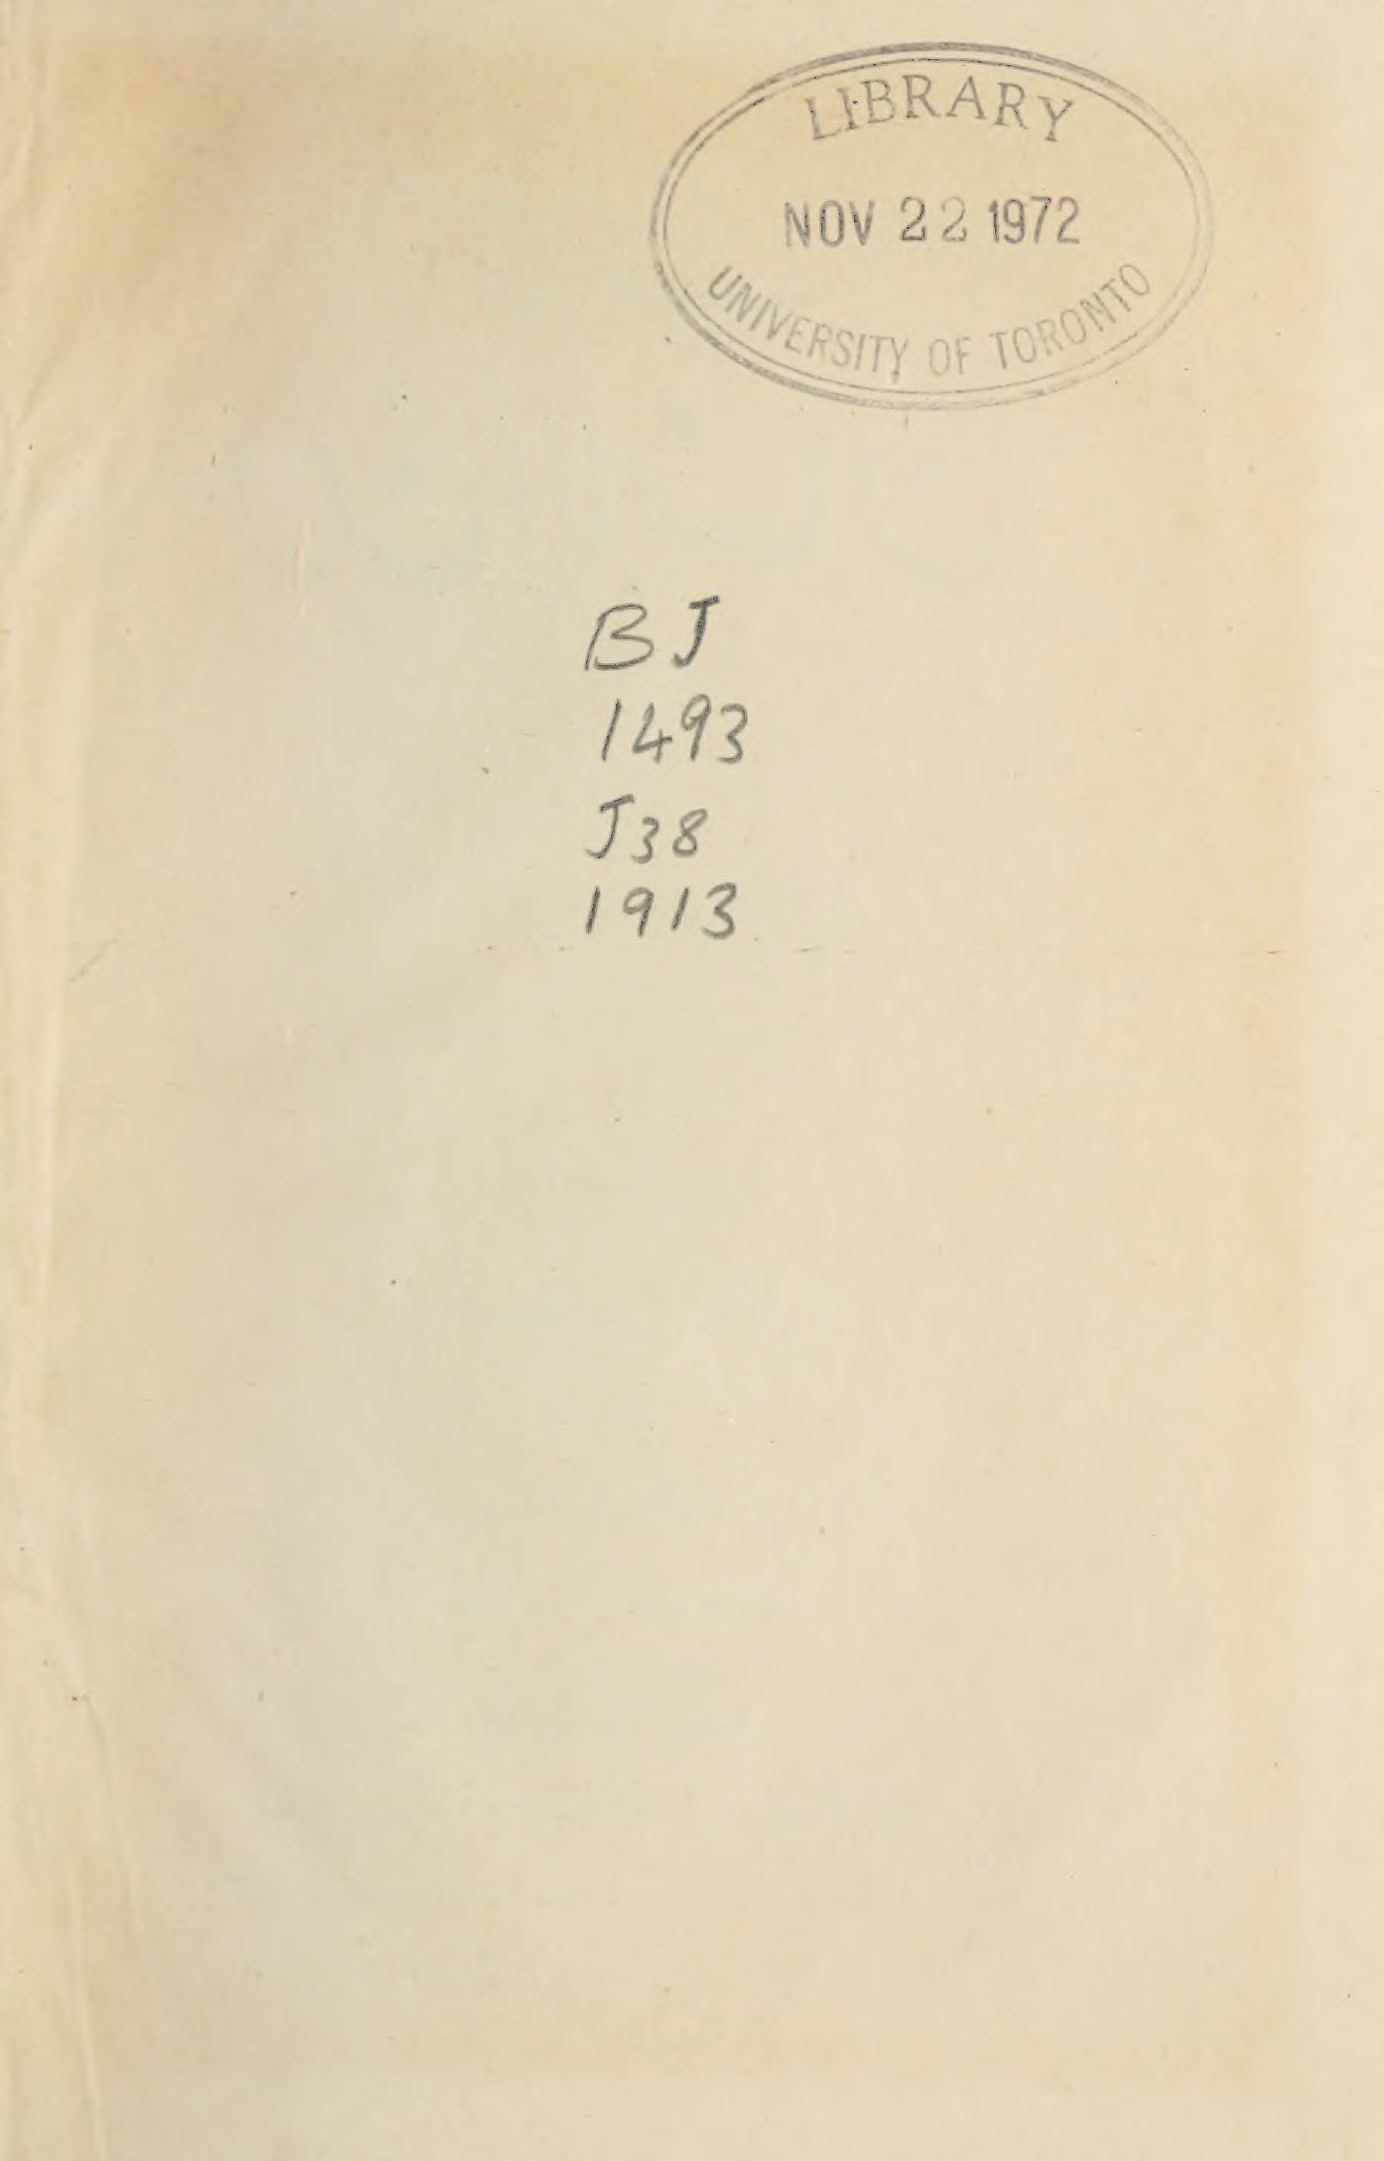 LIBRARY
NOV 22 1972
UNIVERSITY OF TORONTO
BJ
1493
J38
1913